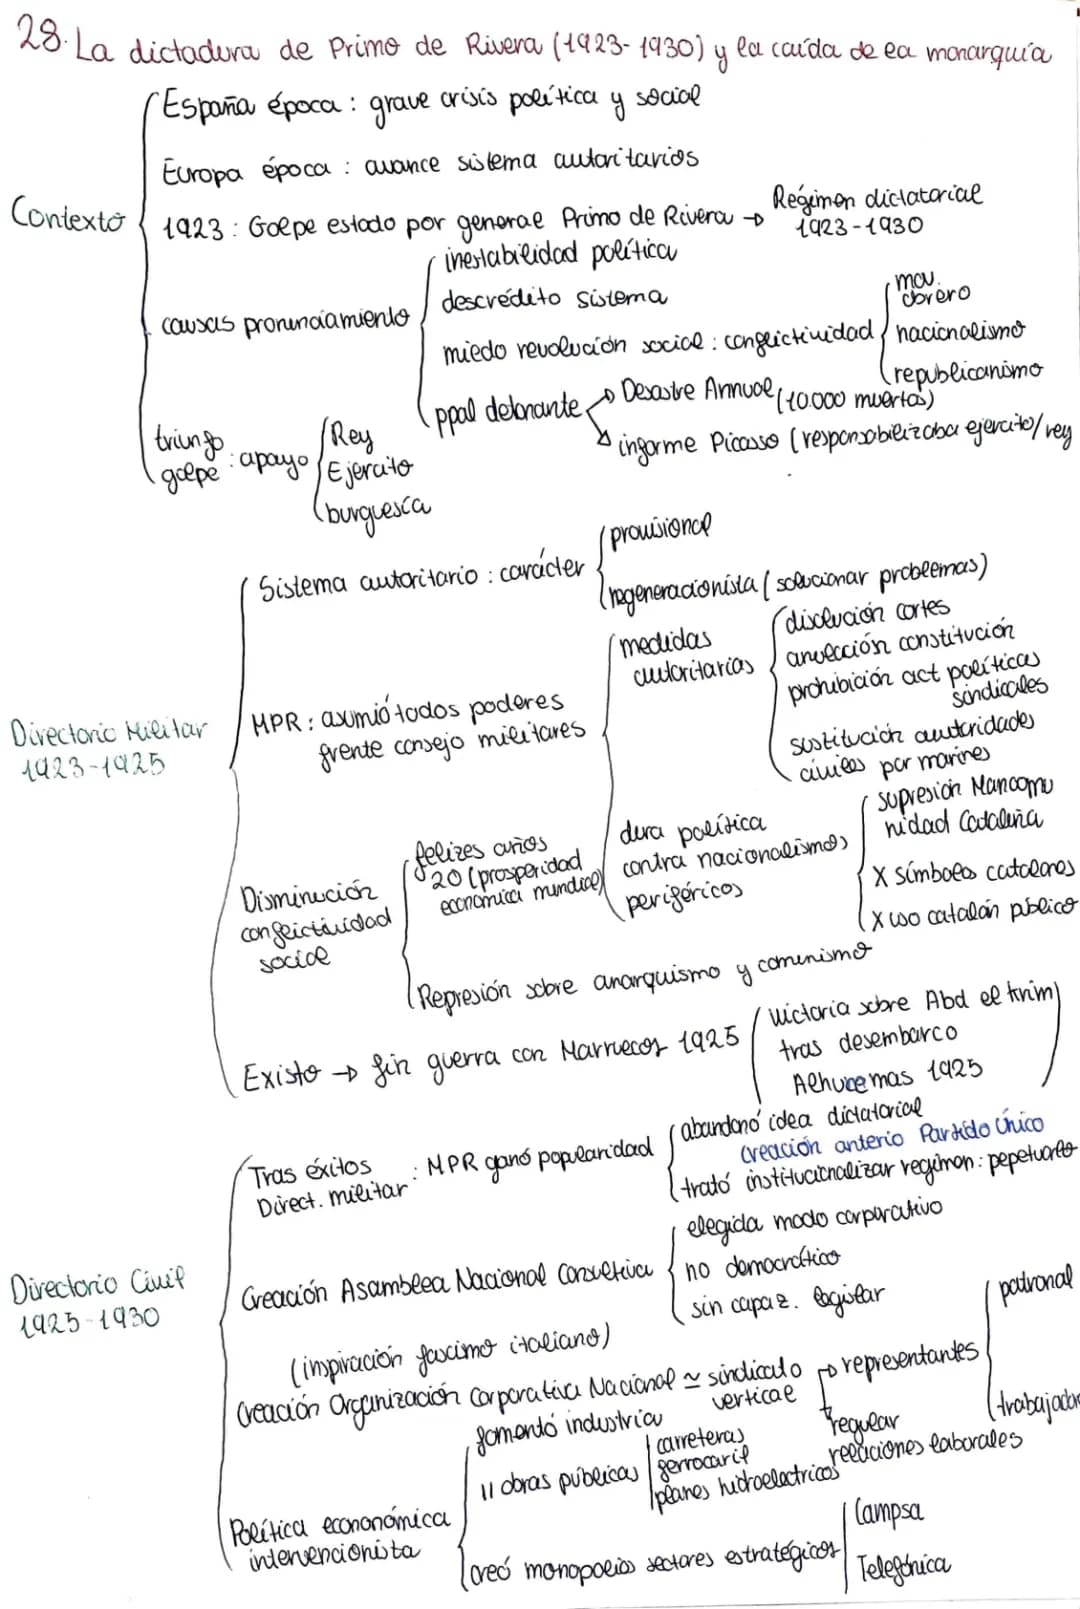 28. La dictadura de Primo de Rivera (1923-1930) y la caída de la monarquía
Contexto
España época : grave crisis política y social
Europa época : avance sistema autoritarios
1923 : Golpe estado por general Primo de Rivera → Régimen dictatorial
1923-1930
causas pronunciamiento
inestabilidad política
descrédito sistema
miedo revolución social : conflictividad
mov. obrero
nacionalismo
republicanismo
ppal detonante
Desastre Annual (10.000 muertos)
informe Picasso (responsabilizaba ejercito/rey
triunfo golpe : apoyo
Rey
Ejercito
burguesía
Directorio Militar
1923-1925
Sistema autoritario : carácter
provisional
regeneracionista (solucionar problemas)
MPR : asumió todos poderes
frente consejo militares
medidas
autoritarias
disolución cortes
anulación constitución
prohibición act políticas
sindicales
sustitución autoridades
civiles por
dura política
contra nacionalismos
periféricos
supresión Mancomu
nidad Cataluña
X símbolos catalanes
X uso catalán público
Disminución
conflictividad
social
felizes años
20 (prosperidad
económica mundial)
Represión sobre anarquismo y comunismo
Existo → fin guerra con Marruecos 1925
victoria sobre Abd el krim
tras desembarco
Alhucemas 1925
Directorio Civil
1925-1930
Tras éxitos
Direct. militar : MPR ganó popularidad
abandonó idea dictatorial
creación anterio Partido Único
trató institucionalizar regimen :
Creación Asamblea Nacional Consultiva
elegida modo corporativo
no democrático
sin capaz. legislar
(inspiración fascimo italiano)
Creación Organización Corporativa Nacional ≃ sindicato
verticae
→ representantes
patronal
trabajador
regular
relaciones laborales
Política econonómica
intervencionista
fomentó industria
" obras públicas
carreteras
ferrocaril
planes hidroelectricos
creó monopolios sectores estratégicos
Campsa
Telefónica